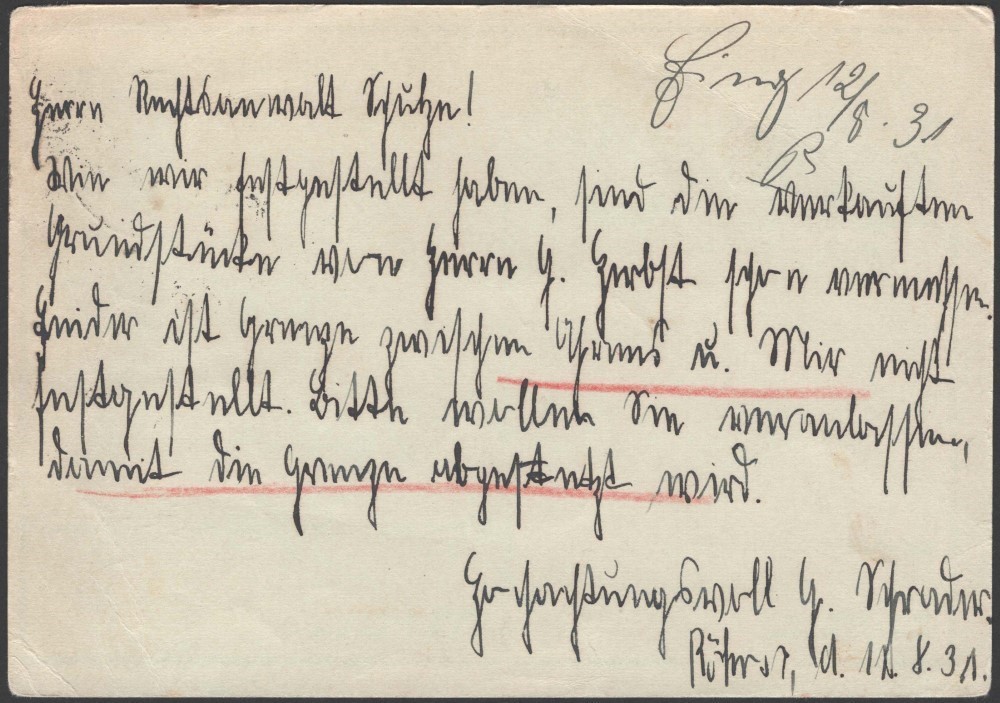 Eing 12/8. 31
Herrn Rechtsanwalt Schulze!
Wie wir festgestellt haben, sind die verkauften
Grundstücke von Herrn G. Herbst schon vermessen.
Leider ist Grenze zwischen u. Mir nicht
festgestellt. Bitte wollen Sie veranlassen,
damit die Grenze abgesteckt wird.
Hochachtungsvoll G. Schrader.
d. 11. 8. 31.